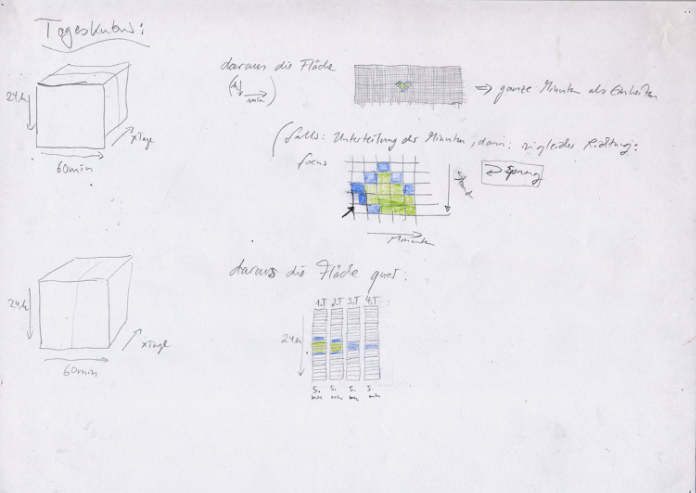 Tageskubus:
24h
60min
x Tage
daraus die Fläche
(h
min)
=> ganze Minuten als Einheiten
(falls: Unterteilung der Minuten, dann: in gleicher Richtung:
focus
=> Sprung
Minuten
24h
60min
x Tage
daraus die Fläche quer:
1.T 2.T 3.T 4.T
24h
5. 5. 5. 5.
min min min min